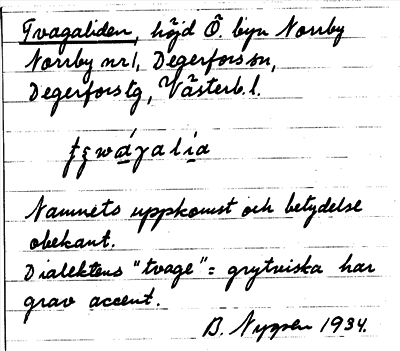 Tvagaliden, höjd Ö. byn Norrby
Norrby nr 1, Degerfors sn,
Degerfors tg, Västerb. l.
Namnets uppkomst och betydelse
obekant.
Dialektens "tvage" = grytviska har
grav accent.
B. 1934.